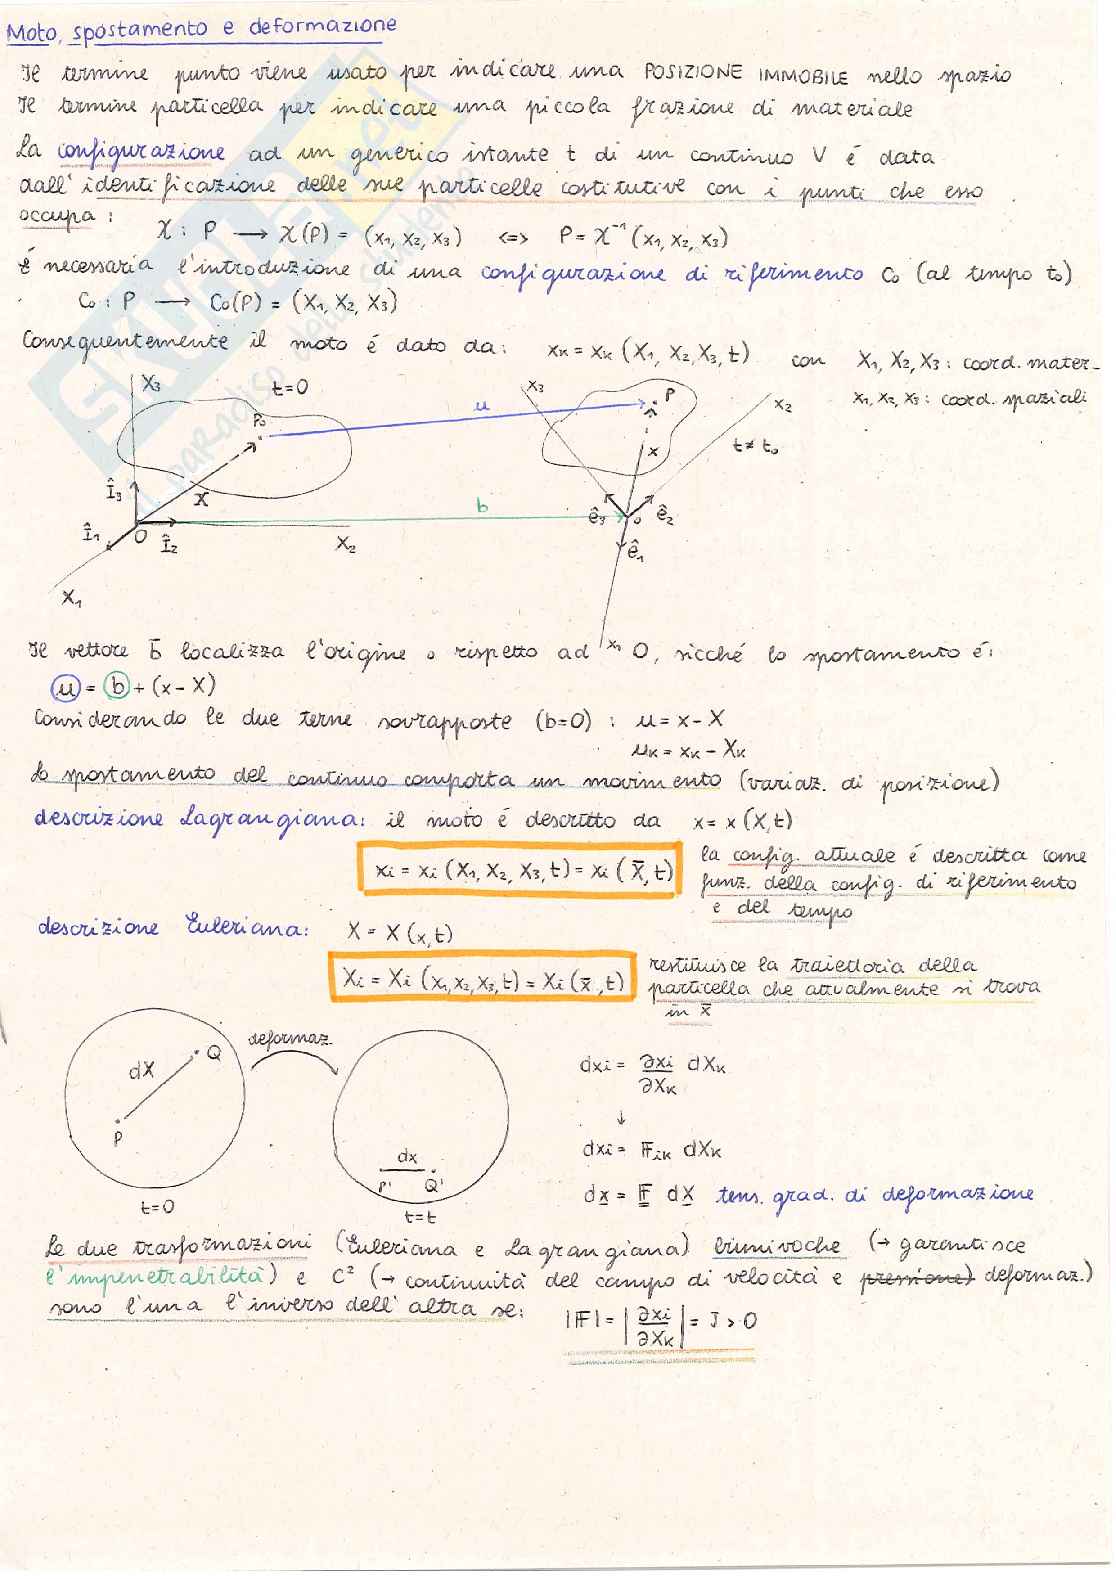 Moto, spostamento e deformazione
Il termine punto viene usato per indicare una POSIZIONE IMMOBILE nello spazio
Il termine particella per indicare una piccola frazione di materiale
La configurazione ad un generico istante t di un continuo V é data
dall'identificazione delle sue particelle costitutive con i punti che esso
occupa: χ : P → χ(P) = (x₁, x₂, x₃) <=> P = χ⁻¹(x₁, x₂, x₃)
É necessaria l'introduzione di una configurazione di riferimento C₀ (al tempo t₀)
C₀ : P → C₀(P) = (X₁, X₂, X₃)
Conseguentemente il moto é dato da: xₖ = xₖ (X₁, X₂, X₃, t) con X₁, X₂, X₃ : coord. mater-
x₁, x₂, x₃ : coord. spaziali
X₃ t=0 P₀ X Î₃ Î₁ O Î₂ X₂ X₁
u b
x₃ P x₂ x t≠t₀ ê₃ o ê₂ ê₁ x₁
Il vettore b̄ localizza l'origine o rispetto ad O, sicché lo spostamento é:
u = b + (x - X)
Considerando le due terne sovrapposte (b=0) : u = x - X
uₖ = xₖ - Xₖ
Lo spostamento del continuo comporta un movimento (variaz. di posizione)
descrizione Lagrangiana: il moto é descritto da x = x (X, t)
xi = xi (X₁, X₂, X₃, t) = xi (X̄, t)
la config. attuale é descritta come
funz. della config. di riferimento
e del tempo
descrizione Euleriana: X = X (x, t)
Xi = Xi (x₁, x₂, x₃, t) = Xi (x̄, t)
restituisce la traiettoria della
particella che attualmente si trova
in x̄
dX Q P t=0
deformaz.
dx P' Q' t=t
dxi = ∂xi/∂Xₖ dXₖ
↓
dxi = 𝔽iₖ dXₖ
dx = 𝔽 dX tens. grad. di deformazione
Le due trasformazioni (Euleriana e Lagrangiana) biunivoche (→ garantisce
l'impenetrabilità) e C² (→ continuità del campo di velocità e pressione) deformaz.)
sono l'una l'inverso dell'altra se: |𝔽| = |∂xi/∂Xₖ| = J > 0